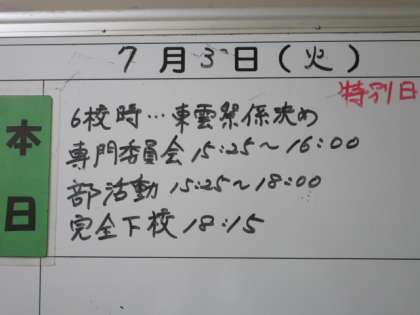 7月3日(火)
特別日
本日
6校時…東雲祭係決め
専門委員会15:25~16:00
部活動15:25~18:00
完全下校18:15